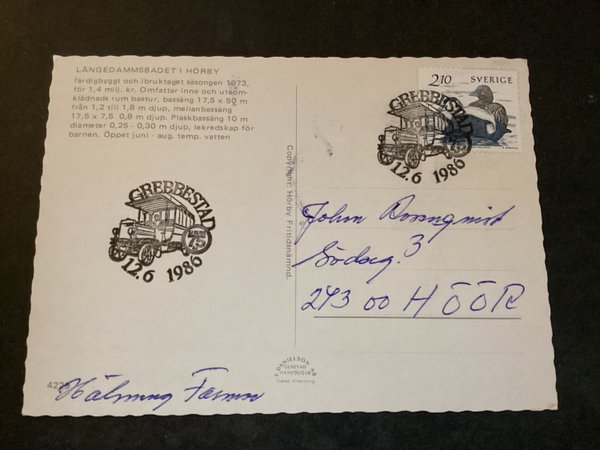 LÅNGEDAMMSBADET I HÖRBY
färdigbyggt och ibruktaget säsongen 1973,
för 1,4 milj. kr. Omfattar inne och uteom-
klädnads rum bastur, bassäng 17,5 x 50 m
från 1,2 till 1,8 m djup, mellanbassäng
17,5 x 7,5 0,8 m djup. Plaskbassäng 10 m
diameter 0,25 - 0,30 m djup, lekredskap för
barnen. Öppet juni - aug. temp. vatten
2.10 SVERIGE
GREBBESTAD
75
12.6 1986
GREBBESTAD
75
12.6 1986
Copyright: Hörby Fritidsnämnd.
John Rosenqvist
Södag. 3
243 00 HÖÖR
DANIELSON
4225
Hälsning Farmor